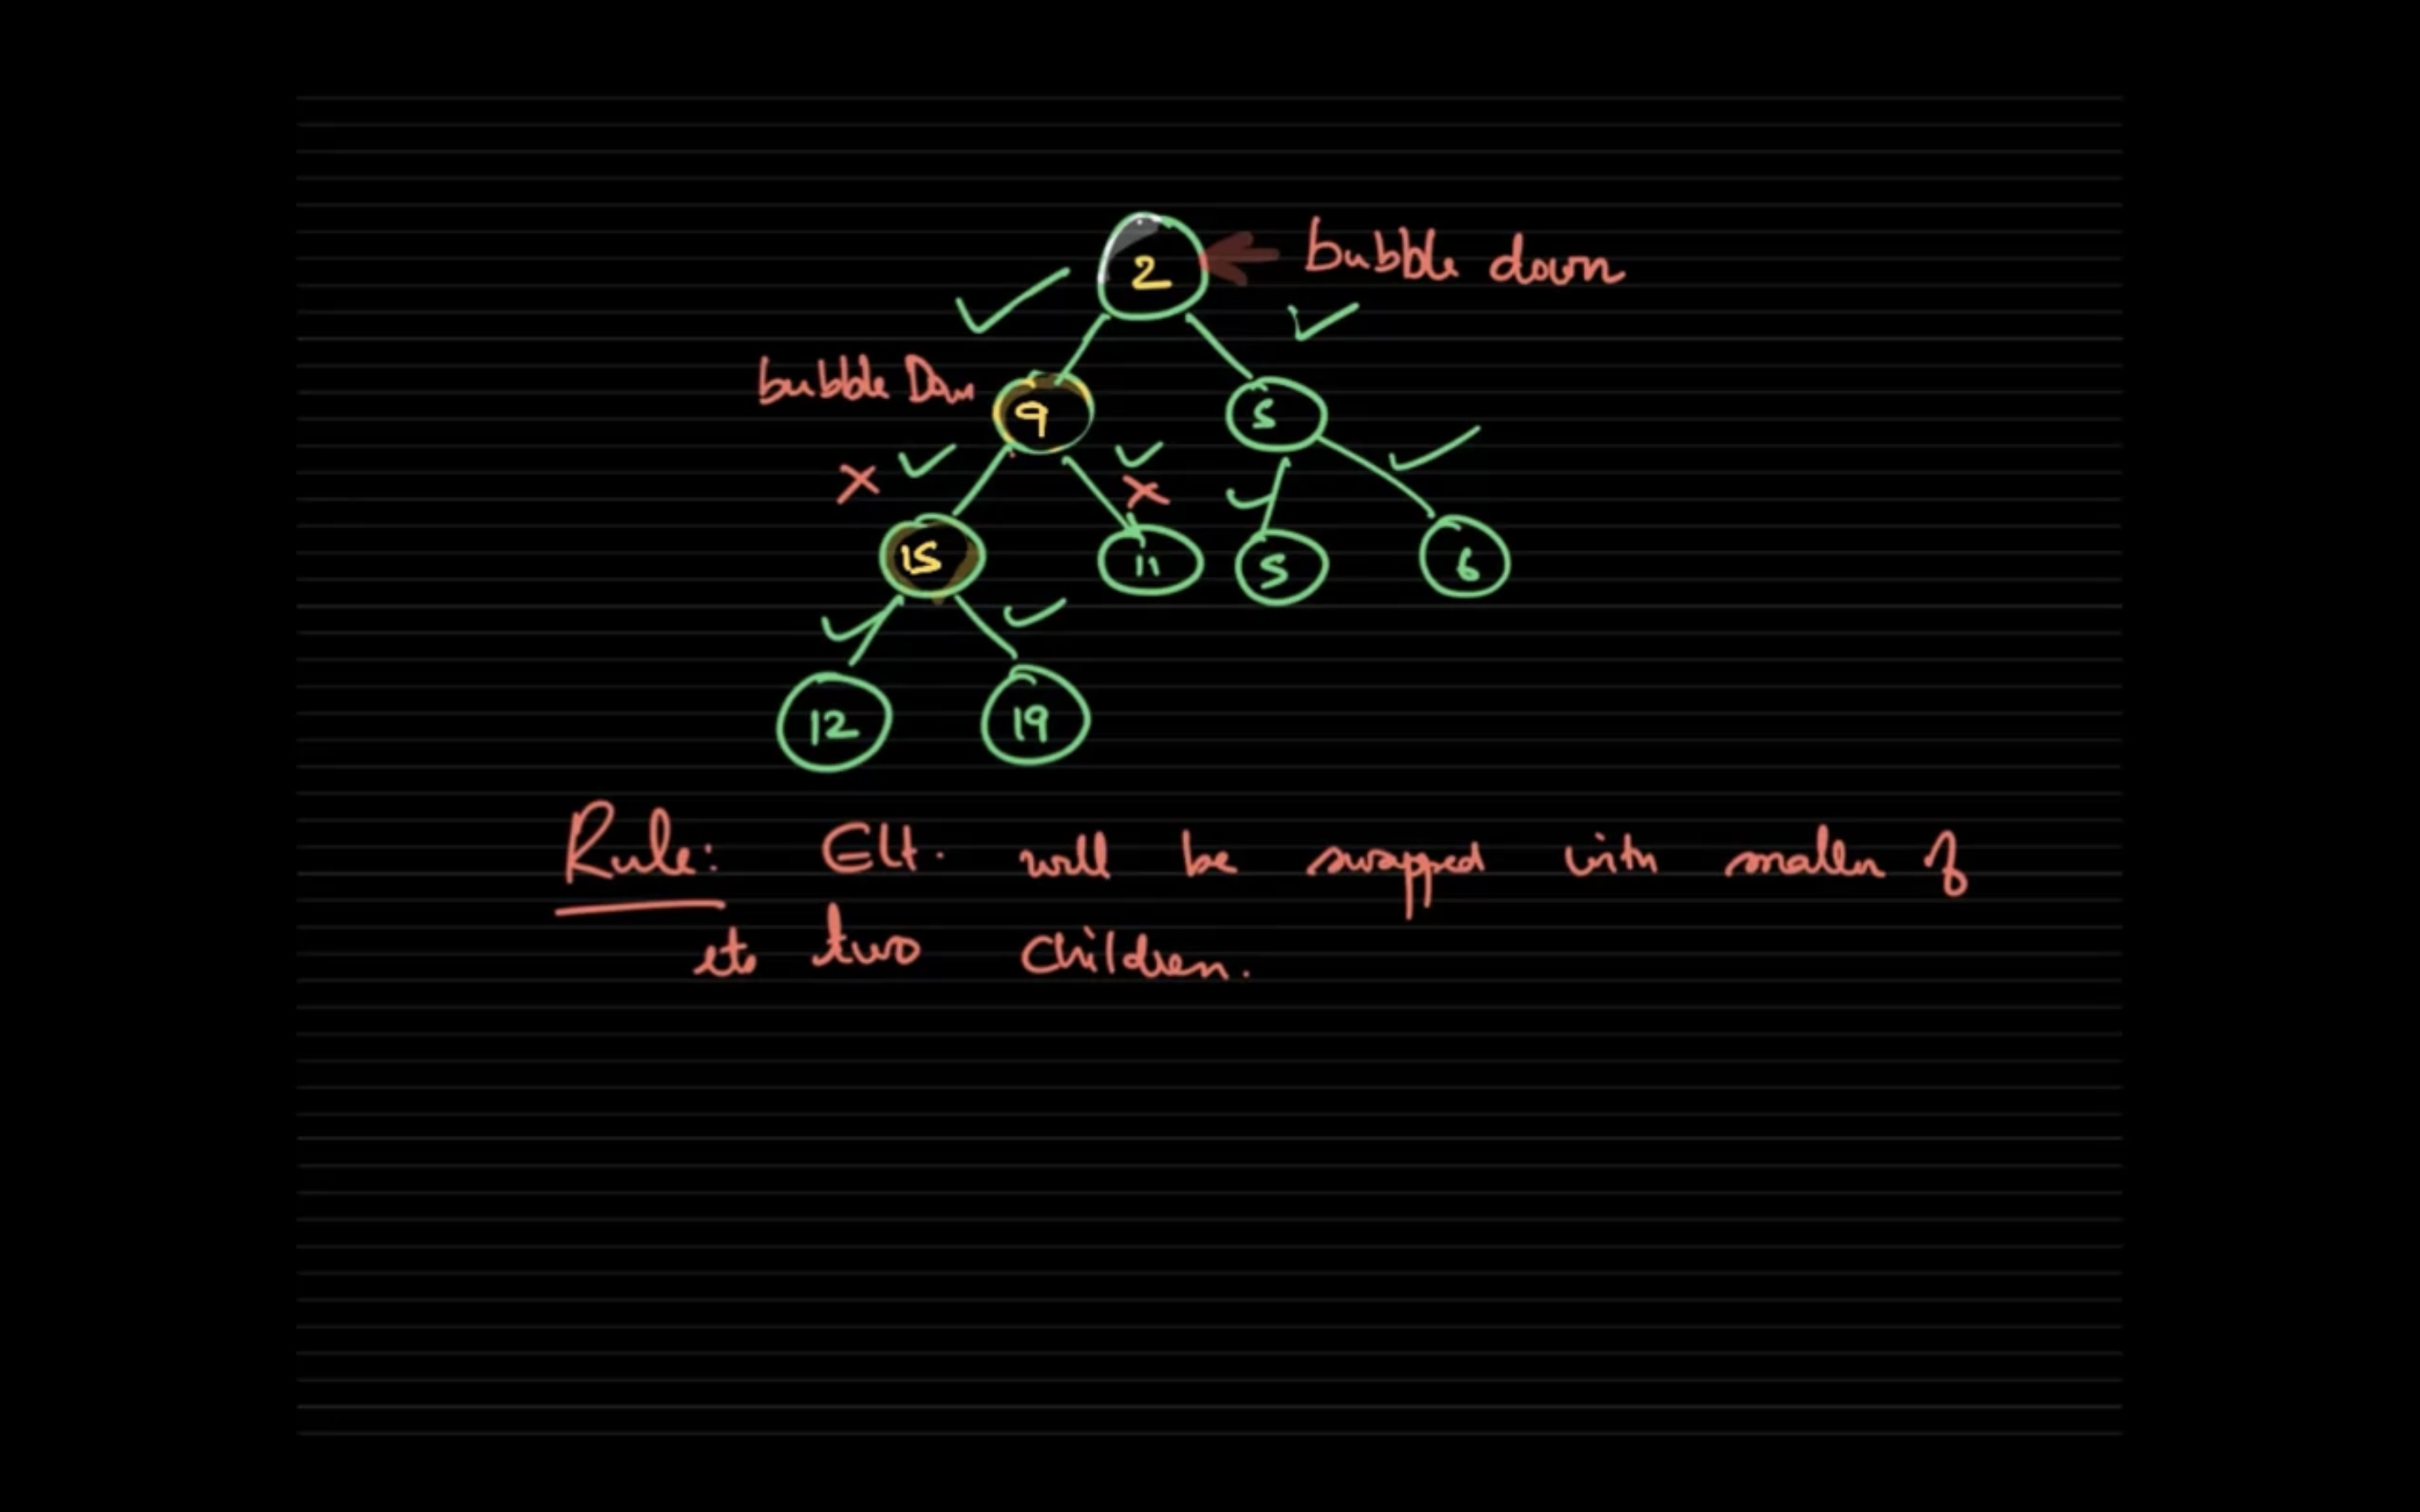 2
bubble down
bubble Down
9
5
15
11
5
6
12
19
Rule: Elt. will be swapped with smaller of
its two children.